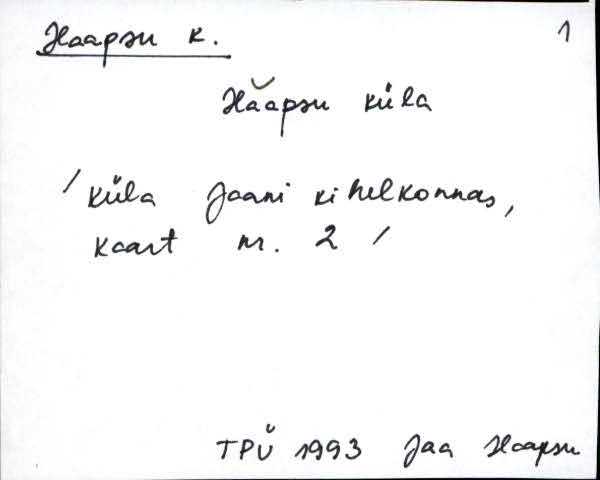 Haapsu k. 1
Hăapsu küla
/ küla Jaani kihelkonnas,
kaart nr. 2 /
TPÜ 1993 Jaa Haapsu